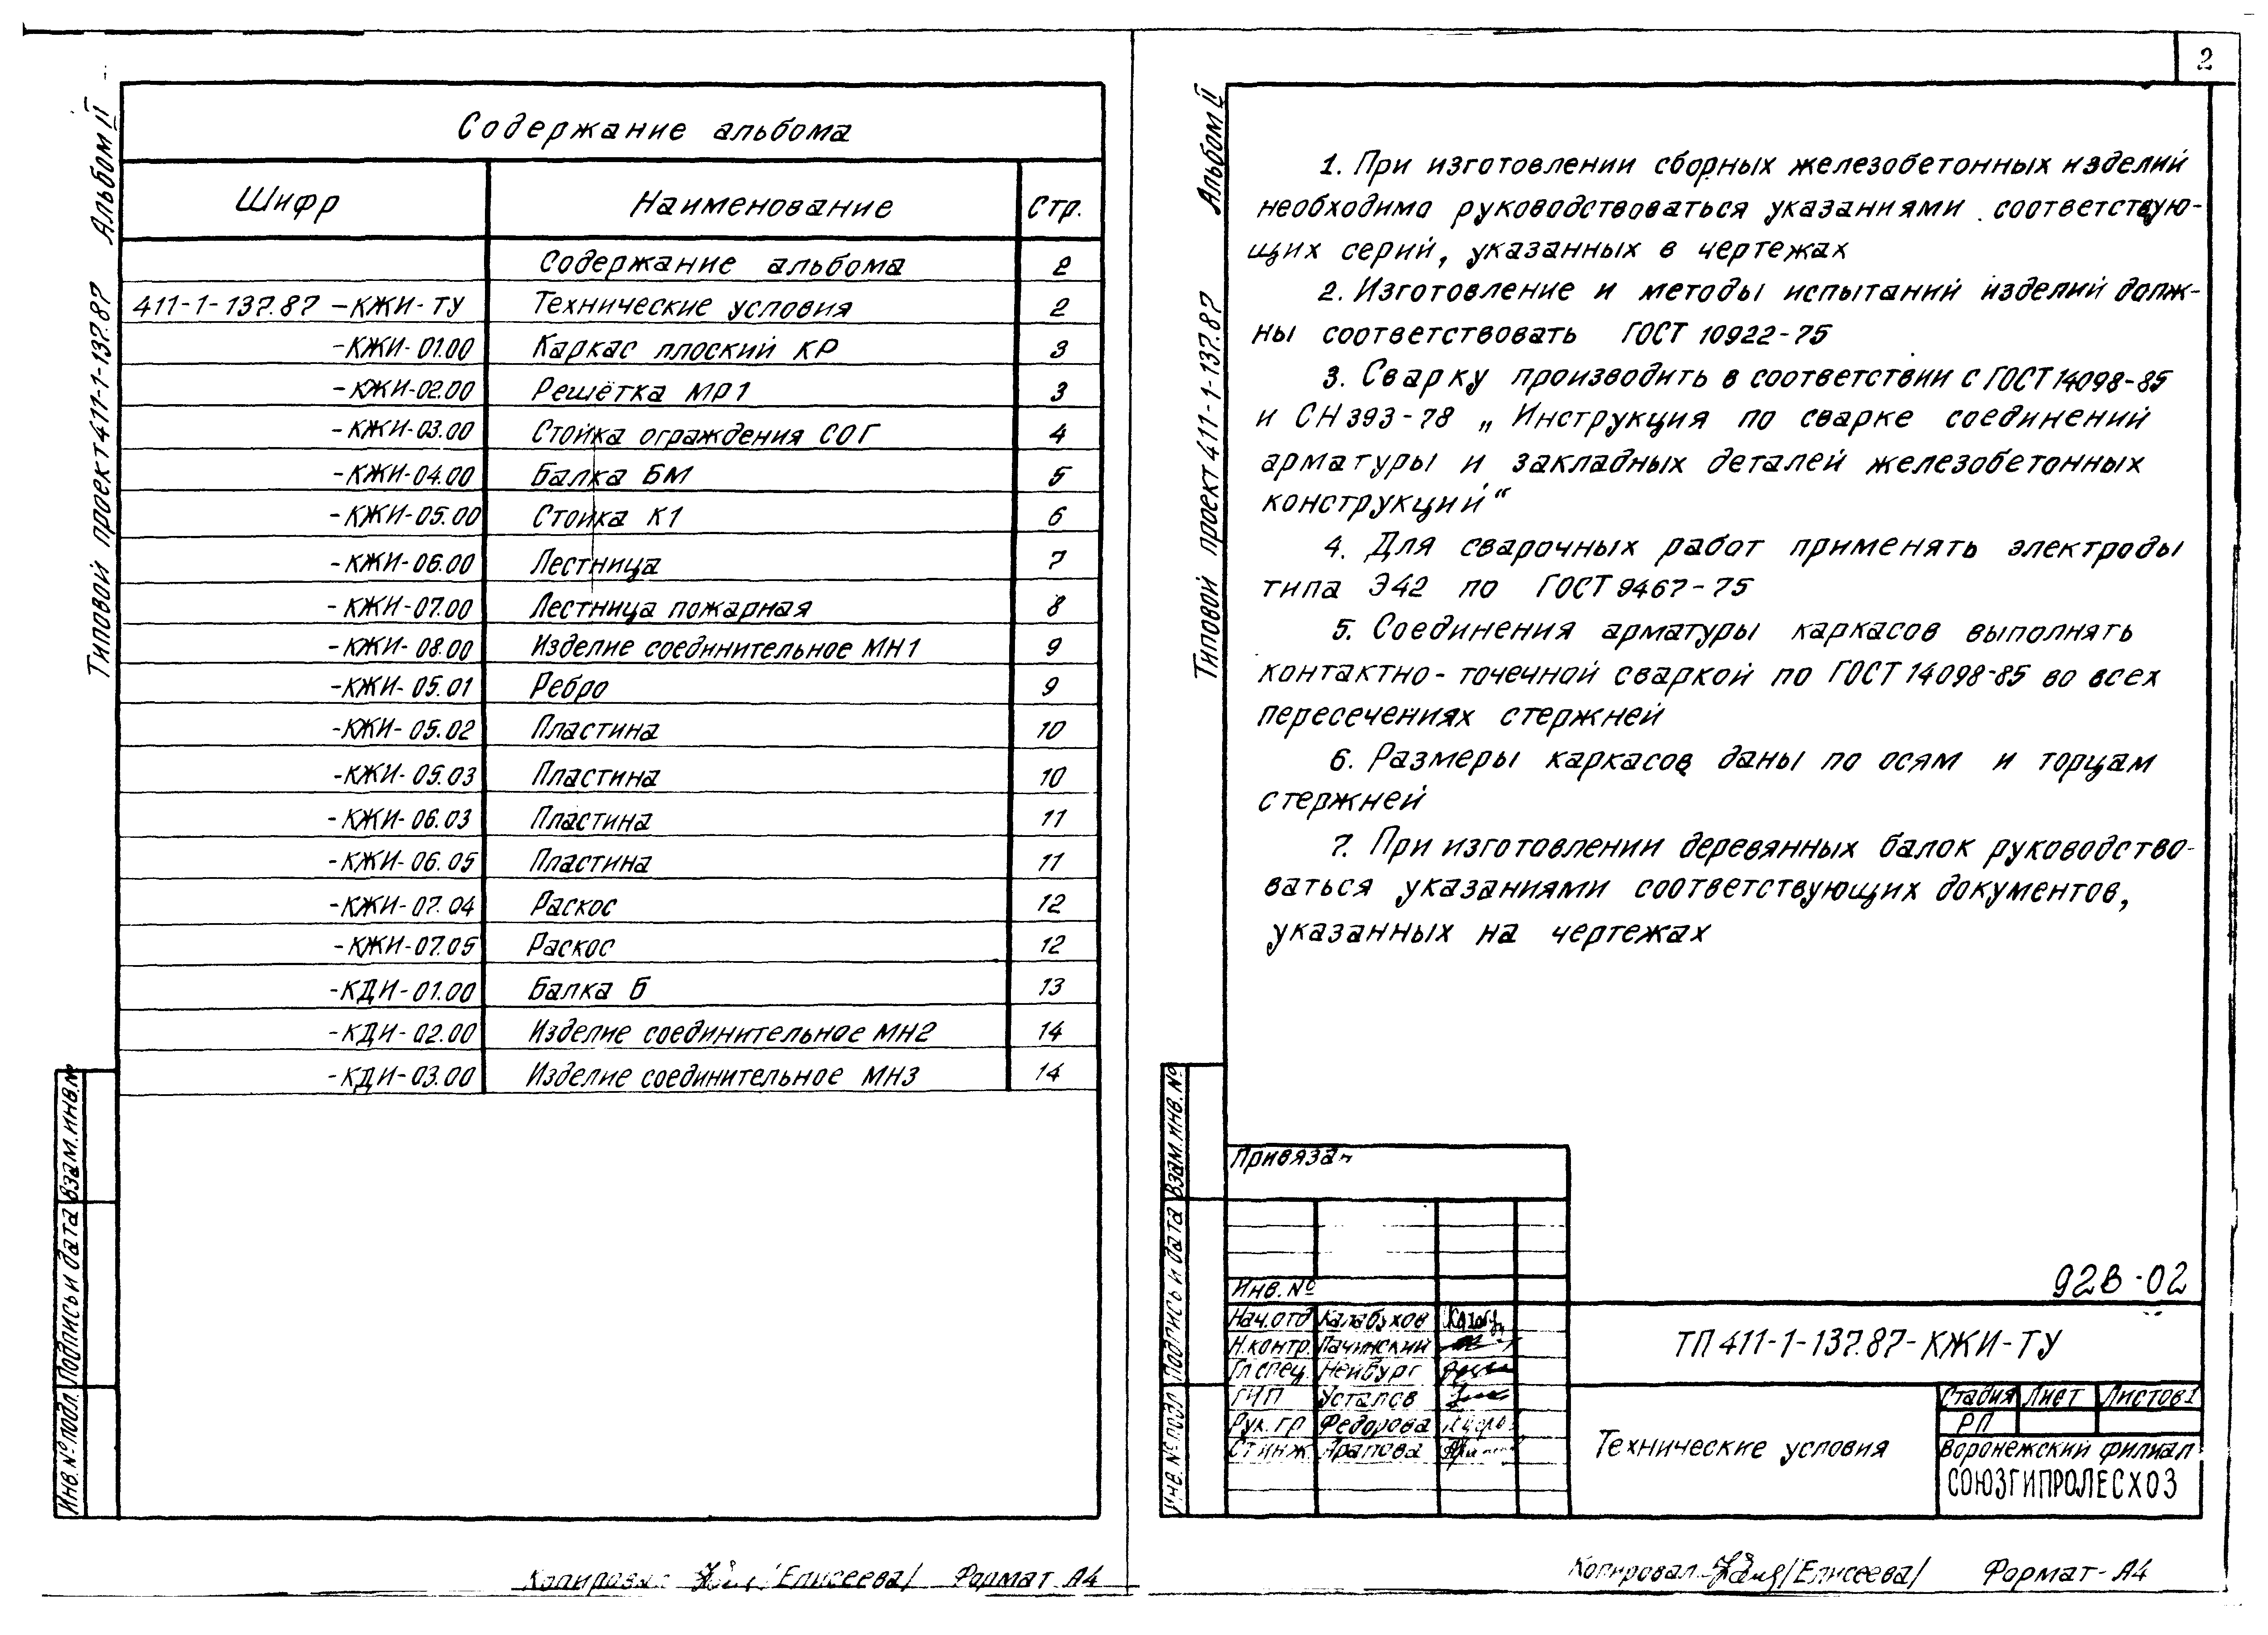 2
Типовой проект 411-1-137.87 Альбом II
Содержание альбома
Шифр Наименование Стр.
Содержание альбома 2
411-1-137.87 -КЖИ-ТУ Технические условия 2
-КЖИ-01.00 Каркас плоский КР 3
-КЖИ-02.00 Решётка МР1 3
-КЖИ-03.00 Стойка ограждения СОГ 4
-КЖИ-04.00 Балка БМ 5
-КЖИ-05.00 Стойка К1 6
-КЖИ-06.00 Лестница 7
-КЖИ-07.00 Лестница пожарная 8
-КЖИ-08.00 Изделие соединительное МН1 9
-КЖИ-05.01 Ребро 9
-КЖИ-05.02 Пластина 10
-КЖИ-05.03 Пластина 10
-КЖИ-06.03 Пластина 11
-КЖИ-06.05 Пластина 11
-КЖИ-07.04 Раскос 12
-КЖИ-07.05 Раскос 12
-КДИ-01.00 Балка Б 13
-КДИ-02.00 Изделие соединительное МН2 14
-КДИ-03.00 Изделие соединительное МН3 14
Инв.№ подл. Подпись и дата Взам.инв.№
Копировал /Елисеева/ Формат А4
Типовой проект 411-1-137.87 Альбом II
1. При изготовлении сборных железобетонных изделий
необходимо руководствоваться указаниями соответствую-
щих серий, указанных в чертежах
2. Изготовление и методы испытаний изделий долж-
ны соответствовать ГОСТ 10922-75
3. Сварку производить в соответствии с ГОСТ 14098-85
и СН 393-78 „Инструкция по сварке соединений
арматуры и закладных деталей железобетонных
конструкций“
4. Для сварочных работ применять электроды
типа Э42 по ГОСТ 9467-75
5. Соединения арматуры каркасов выполнять
контактно-точечной сваркой по ГОСТ 14098-85 во всех
пересечениях стержней
6. Размеры каркасов даны по осям и торцам
стержней
7. При изготовлении деревянных балок руководство-
ваться указаниями соответствующих документов,
указанных на чертежах
Инв.№ подл. Подпись и дата Взам.инв.№
Привязан
Инв.№
928-02
Нач.отд Калабухов
Н.контр. Пачинский
Гл.спец. Нейбург
ГИП Усталов
Рук.гр Федорова
Ст.инж Арапова
ТП 411-1-137.87-КЖИ-ТУ
Технические условия
Стадия Лист Листов 1
РП
Воронежский филиал
СОЮЗГИПРОЛЕСХОЗ
Копировал /Елисеева/ Формат-А4